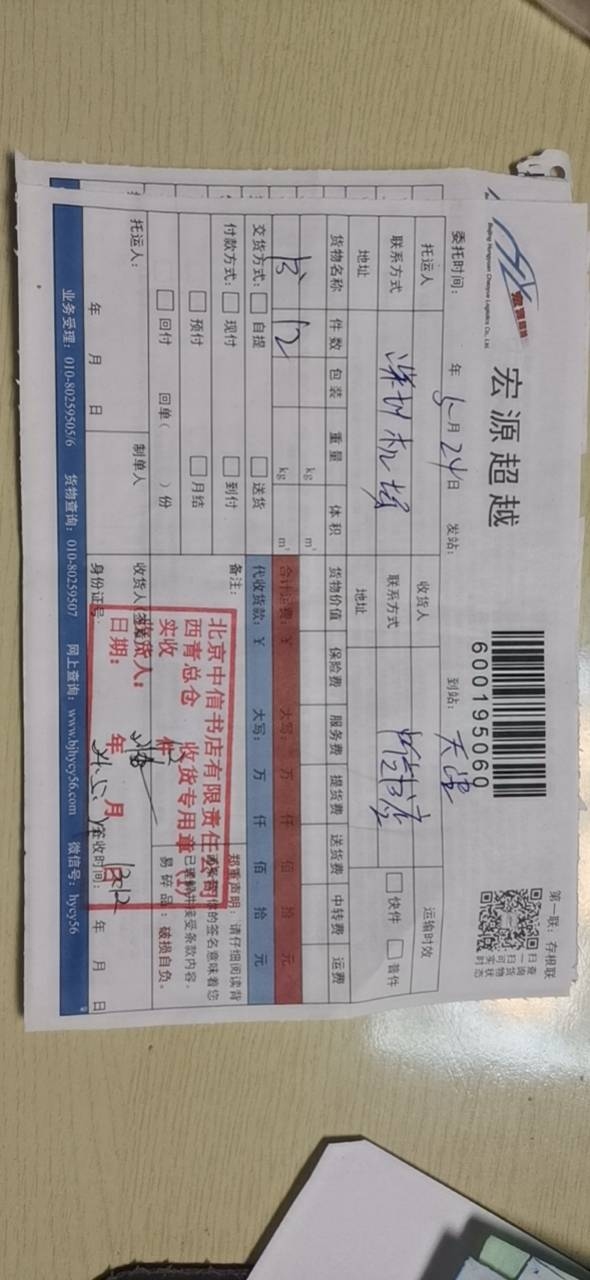 宏源超越
Beijing Hongyuan Chaoyue Logistics Co., Ltd.
600195060
第一联：存根联
扫一扫可实时
查询货物状态
委托时间： 年 5月24日 发站： 到站：天津
托运人 深圳机场 收货人 中信书店 运输时效
联系方式 联系方式 快件 普件
地址 地址
货物名称 件数 包装 重量 体积 货物价值 保险费 服务费 提货费 送货费 中转费 运费
kg m³
书 12 kg m³ 合计运费：¥ 大写： 万 仟 佰 拾 元
交货方式： 自提 送货 代收货款：¥ 大写： 万 仟 佰 拾 元
付款方式： 现付 到付 备注： 郑重声明：请仔细阅读背
预付 月结 的签名意味着您
已理解并接受条款内容。
回付 回单（ ）份 易碎品：破损自负。
托运人： 制单人 收货人
年 月 日 身份证号 签收时间： 年 月 日
北京中信书店有限责任公司
西青总仓 收货专用章
(1)
实收 件
收货人：
日期： 年 月 日
业务受理：010-80259505/6 货物查询：010-80259507 网上查询：www.bjhycy56.com 微信号：hycy56